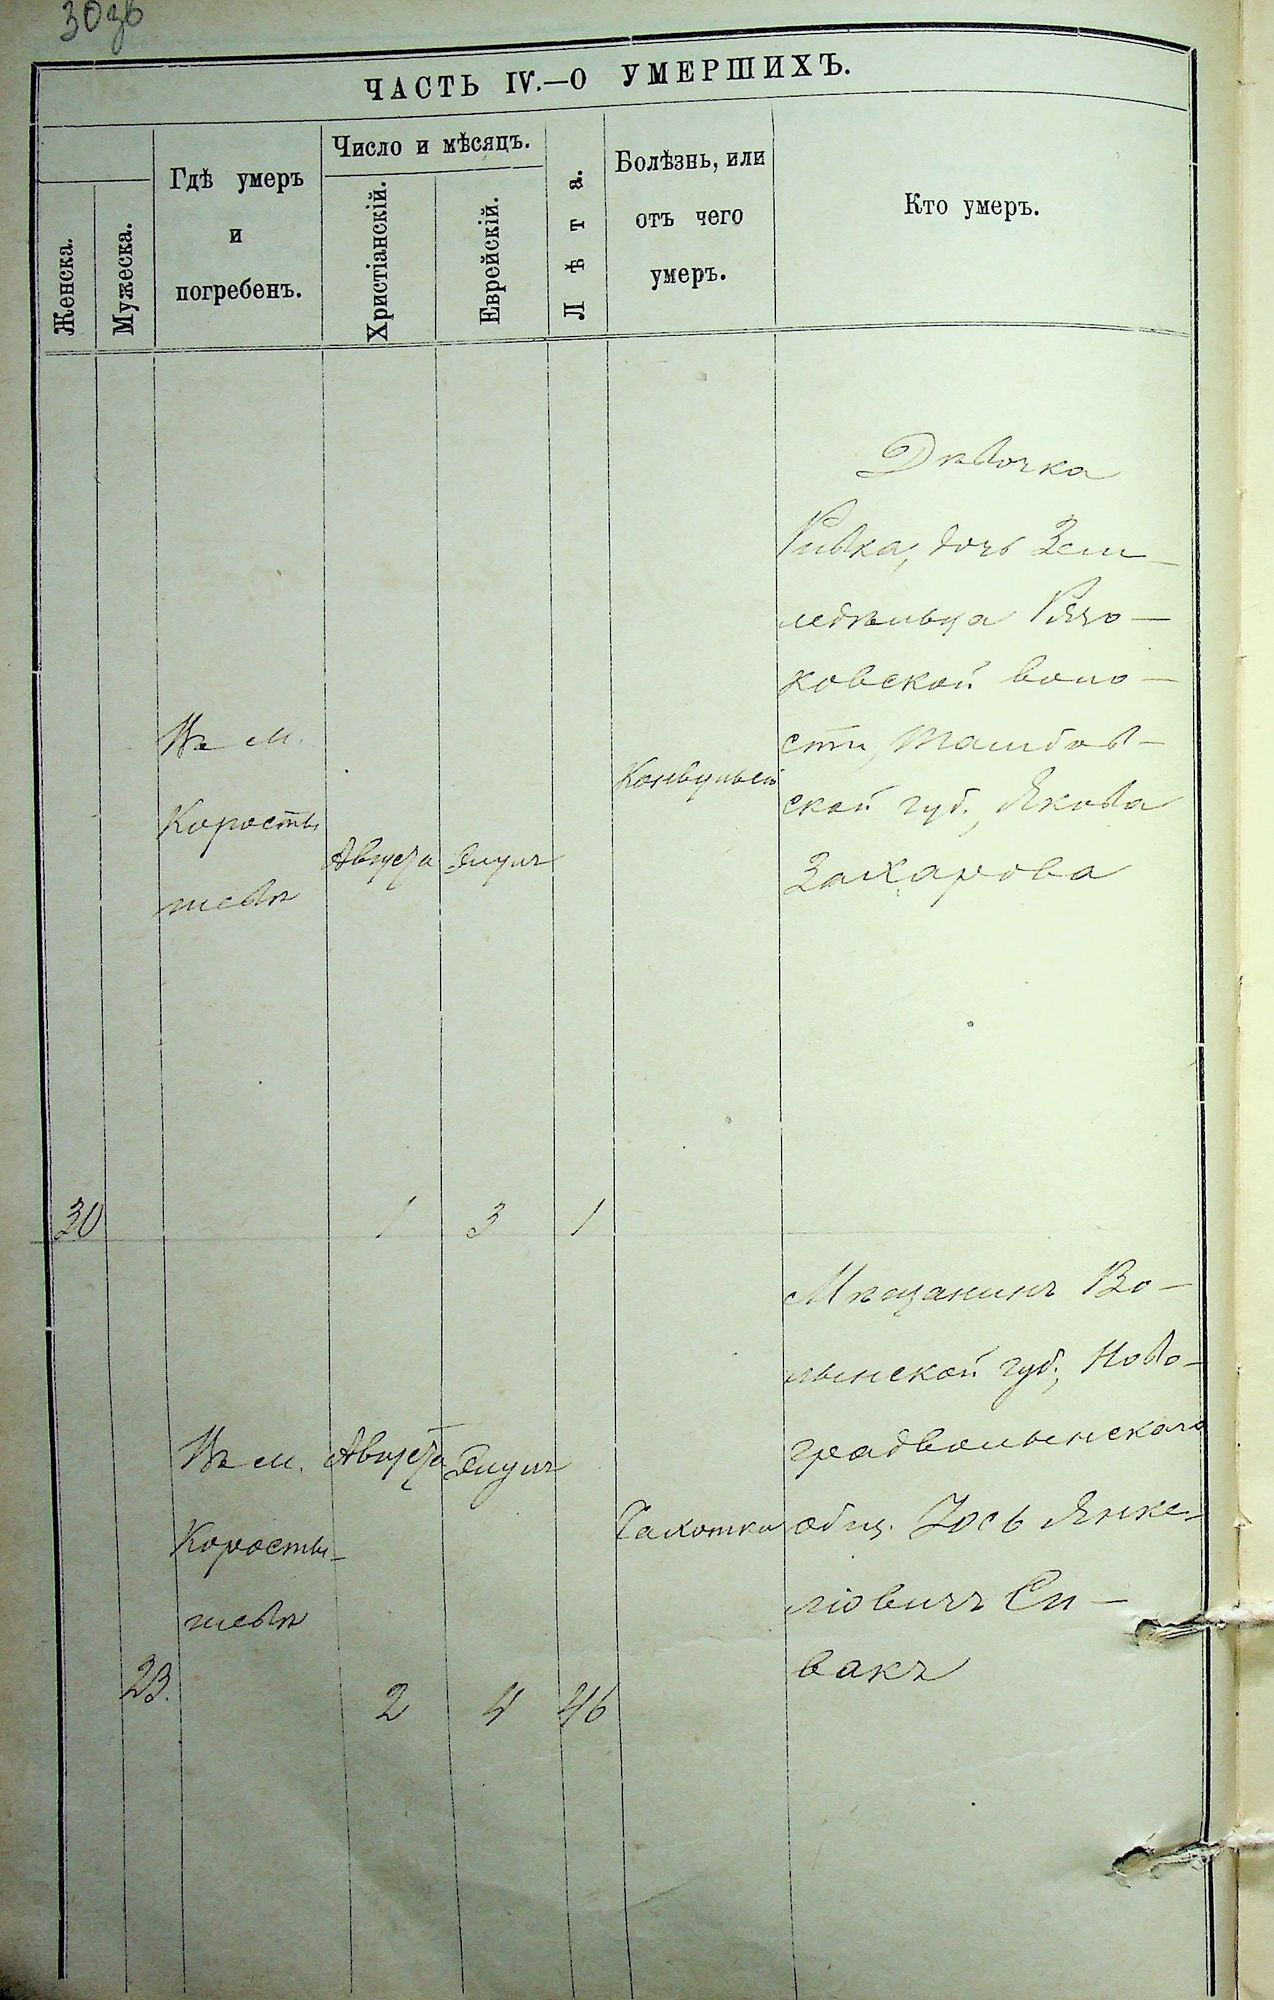 30зв
ЧАСТЬ IV.—О УМЕРШИХЪ.
Женска.
Мужеска.
Гдѣ умеръ
и
погребенъ.
Число и мѣсяцъ.
Христіанскій.
Еврейскій.
Лѣта.
Болѣзнь, или
отъ чего
умеръ.
Кто умеръ.
30
Въ м.
Корости
шевѣ
Августа
1
Элулъ
3
1
Конвульсіи
Дѣвочка
Ривка, дочь Зем-
ледѣльца
ковской воло-
сти, Тамбов-
ской губ., Якова
Захарова
23.
Въ м.
Корости-
шевѣ
Августа
2
Элулъ
4
46
Чахотки
Мѣщанинъ Во-
лынской губ., Ново-
градволынскаго
общ. Іось Янке-
ліовичъ Спи-
вакъ